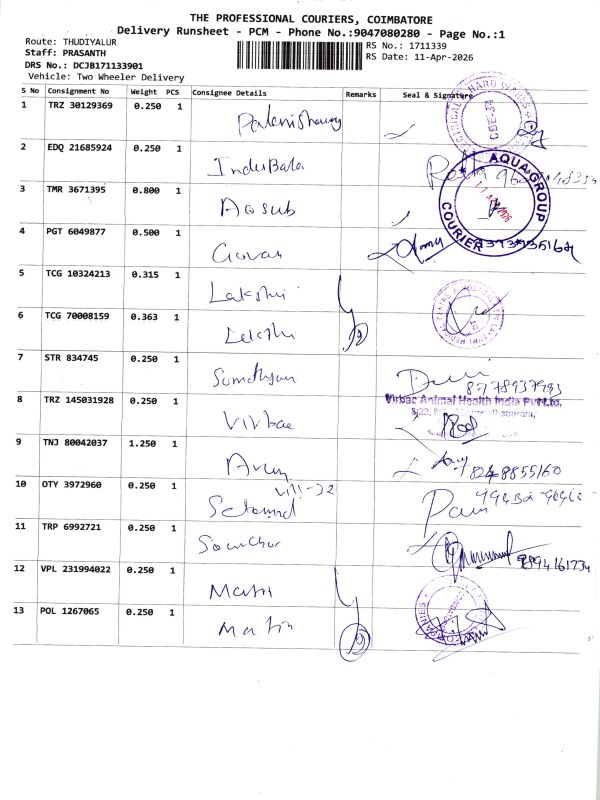 THE PROFESSIONAL COURIERS, COIMBATORE
Delivery Runsheet - PCM - Phone No.:9047080280 - Page No.:1
Route: THUDIYALUR
RS No.: 1711339
Staff: PRASANTH
RS Date: 11-Apr-2026
DRS No.: DCJB171133901
Vehicle: Two Wheeler Delivery
S No Consignment No Weight PCS Consignee Details Remarks Seal & Signature
1 TRZ 30129369 0.250 1
2 EDQ 21685924 0.250 1 InduBala
AQUA GROUP
COURIER
3 TMR 3671395 0.800 1
4 PGT 6049877 0.500 1
5 TCG 10324213 0.315 1 Lakshmi
6 TCG 70008159 0.363 1
7 STR 834745 0.250 1
8778937993
8 TRZ 145031928 0.250 1 Virbac
Virbac Animal Health India Pvt.Ltd.
9 TNJ 80042037 1.250 1 Arun
10 OTY 3972960 0.250 1
11 TRP 6992721 0.250 1
9894161734
12 VPL 231994022 0.250 1
13 POL 1267065 0.250 1 Martin